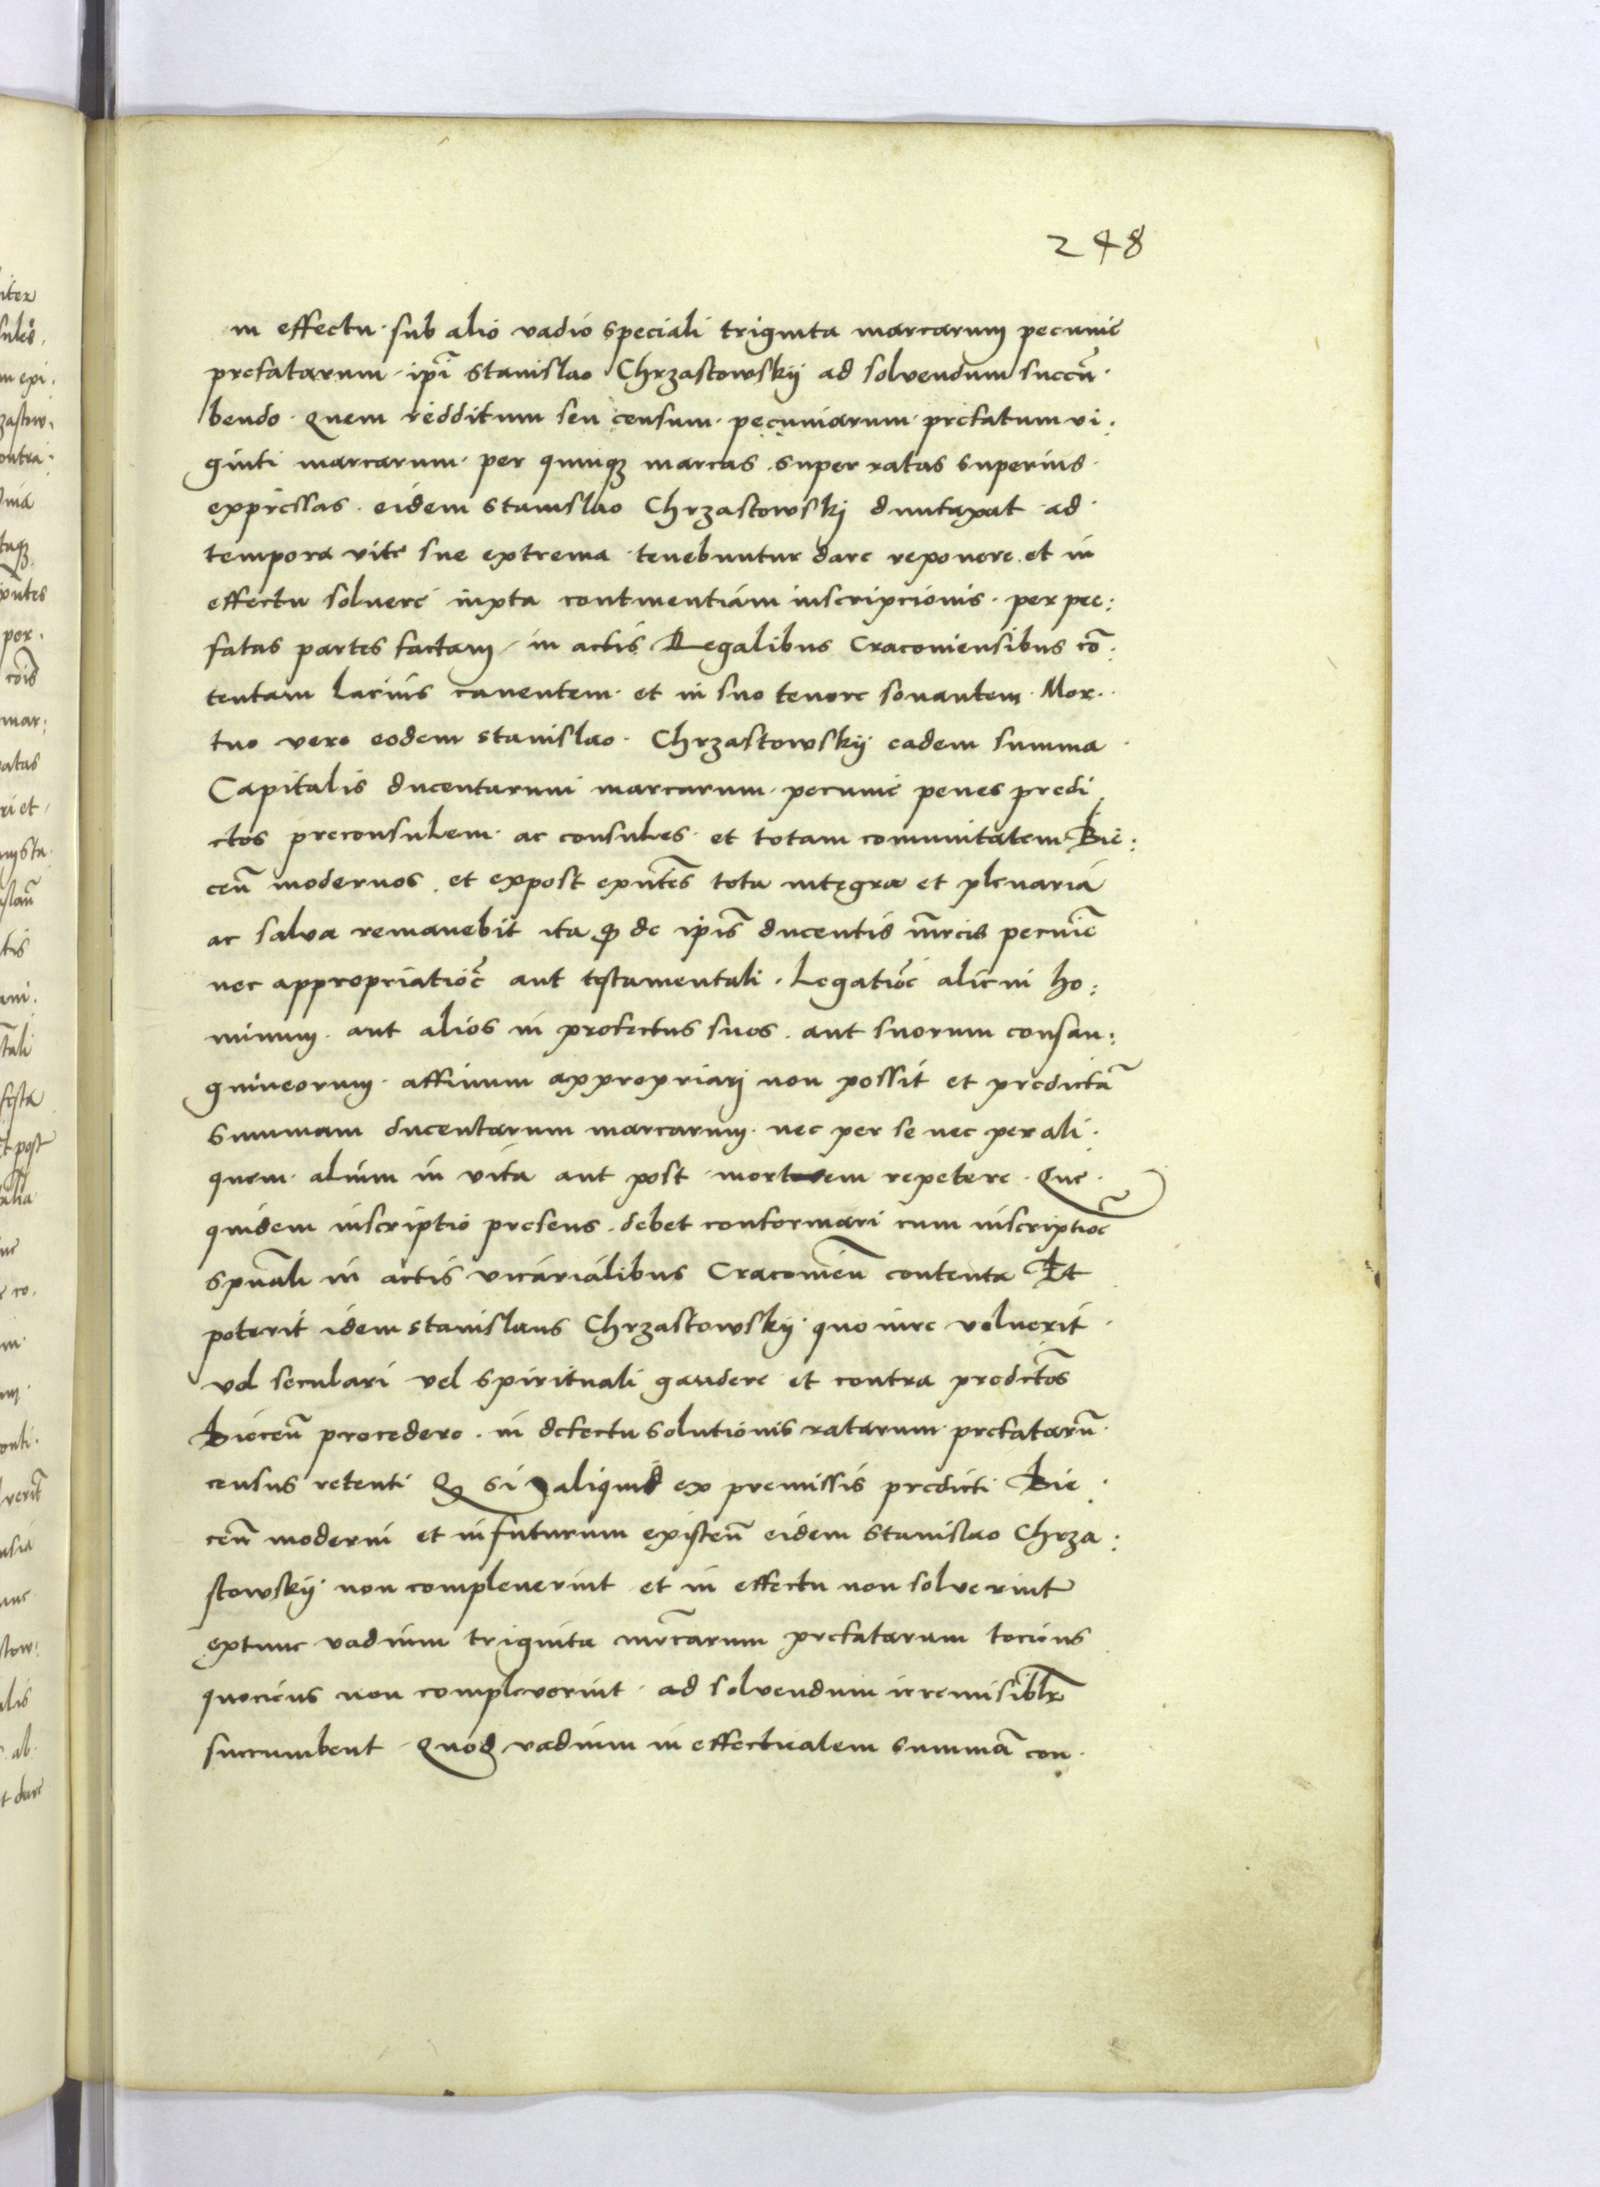 248
in effectu · sub alio vadio speciali triginta marcarum pecunie
prefatarum · ip̃i Stanislao Chrzastowskij ad solvendum succũ·
bendo · Quem redditum seu censum · pecuniarum · prefatum vi:
ginti marcarum · per quinqȝ marcas · super ratas superius ·
expressas · eidem Stanislao Chrzastowskj duntaxat · ad ·
tempora vite sue extrema · tenebuntur dare reponere · et in
effectu solvere iuxta continentiam inscripcionis · per pre:
fatas partes factam / in actis Regalibus Cracoviensibus cõ:
tentam lacius caventem · et in suo tenore sonantem · Mor··
tuo vero eodem Stanislao · Chrzastowskij eadem summa ·
Capitalis ducentarum marcarum · pecunie penes predi
ctos preconsulem · ac consules · et totam comunitatem Bie:
ceñ modernos · et expost exñtes tota integra et plenaria
ac salva remanebit ita ꝙ de ip̃is ducentis m̃rcis pecunie
nec appropriatiõe aut testamentali · Legatiõe alicui ho:
minum · aut alios in profectus suos · aut suorum consan:
guineorum · affinum appropriari non possit et predictã
summam ducentarum marcarum · nec per se nec per ali·
quem · alium in vita aut post · mortem repetere · Que ·
quidem inscriptio presens · debet conformari cum inscriptiõe
spũali in actis vicarialibus Cracovieñ contenta Et
poterit idem Stanislaus Chrzastowskij · quo iure voluerit ·
vel seculari vel spirituali gaudere et contra predictos
Bieceñ procedere · in defectu solutionis ratarum · prefatarũ ·
census retenti Qȝ si aliquid ex premissis predicti Bie ·
ceñ moderni et infuturum existeñ eidem Stanislao Chrza:
stowskij · non compleverint et in effectu non solverint
extunc vadium triginta m̃rcarum prefatarum tociens
quociens non compleverint · ad solvendum irremisiblr̃
succumbent · Quod vadium in effectualem summã con ·